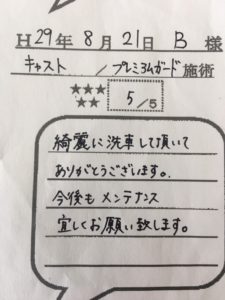 H29年8月21日 B 様
キャスト / プレミアムガード 施術
★★★
★★
5/5
綺麗に洗車して頂いて
ありがとうございます。
今後も メンテナンス
宜しくお願い致します。